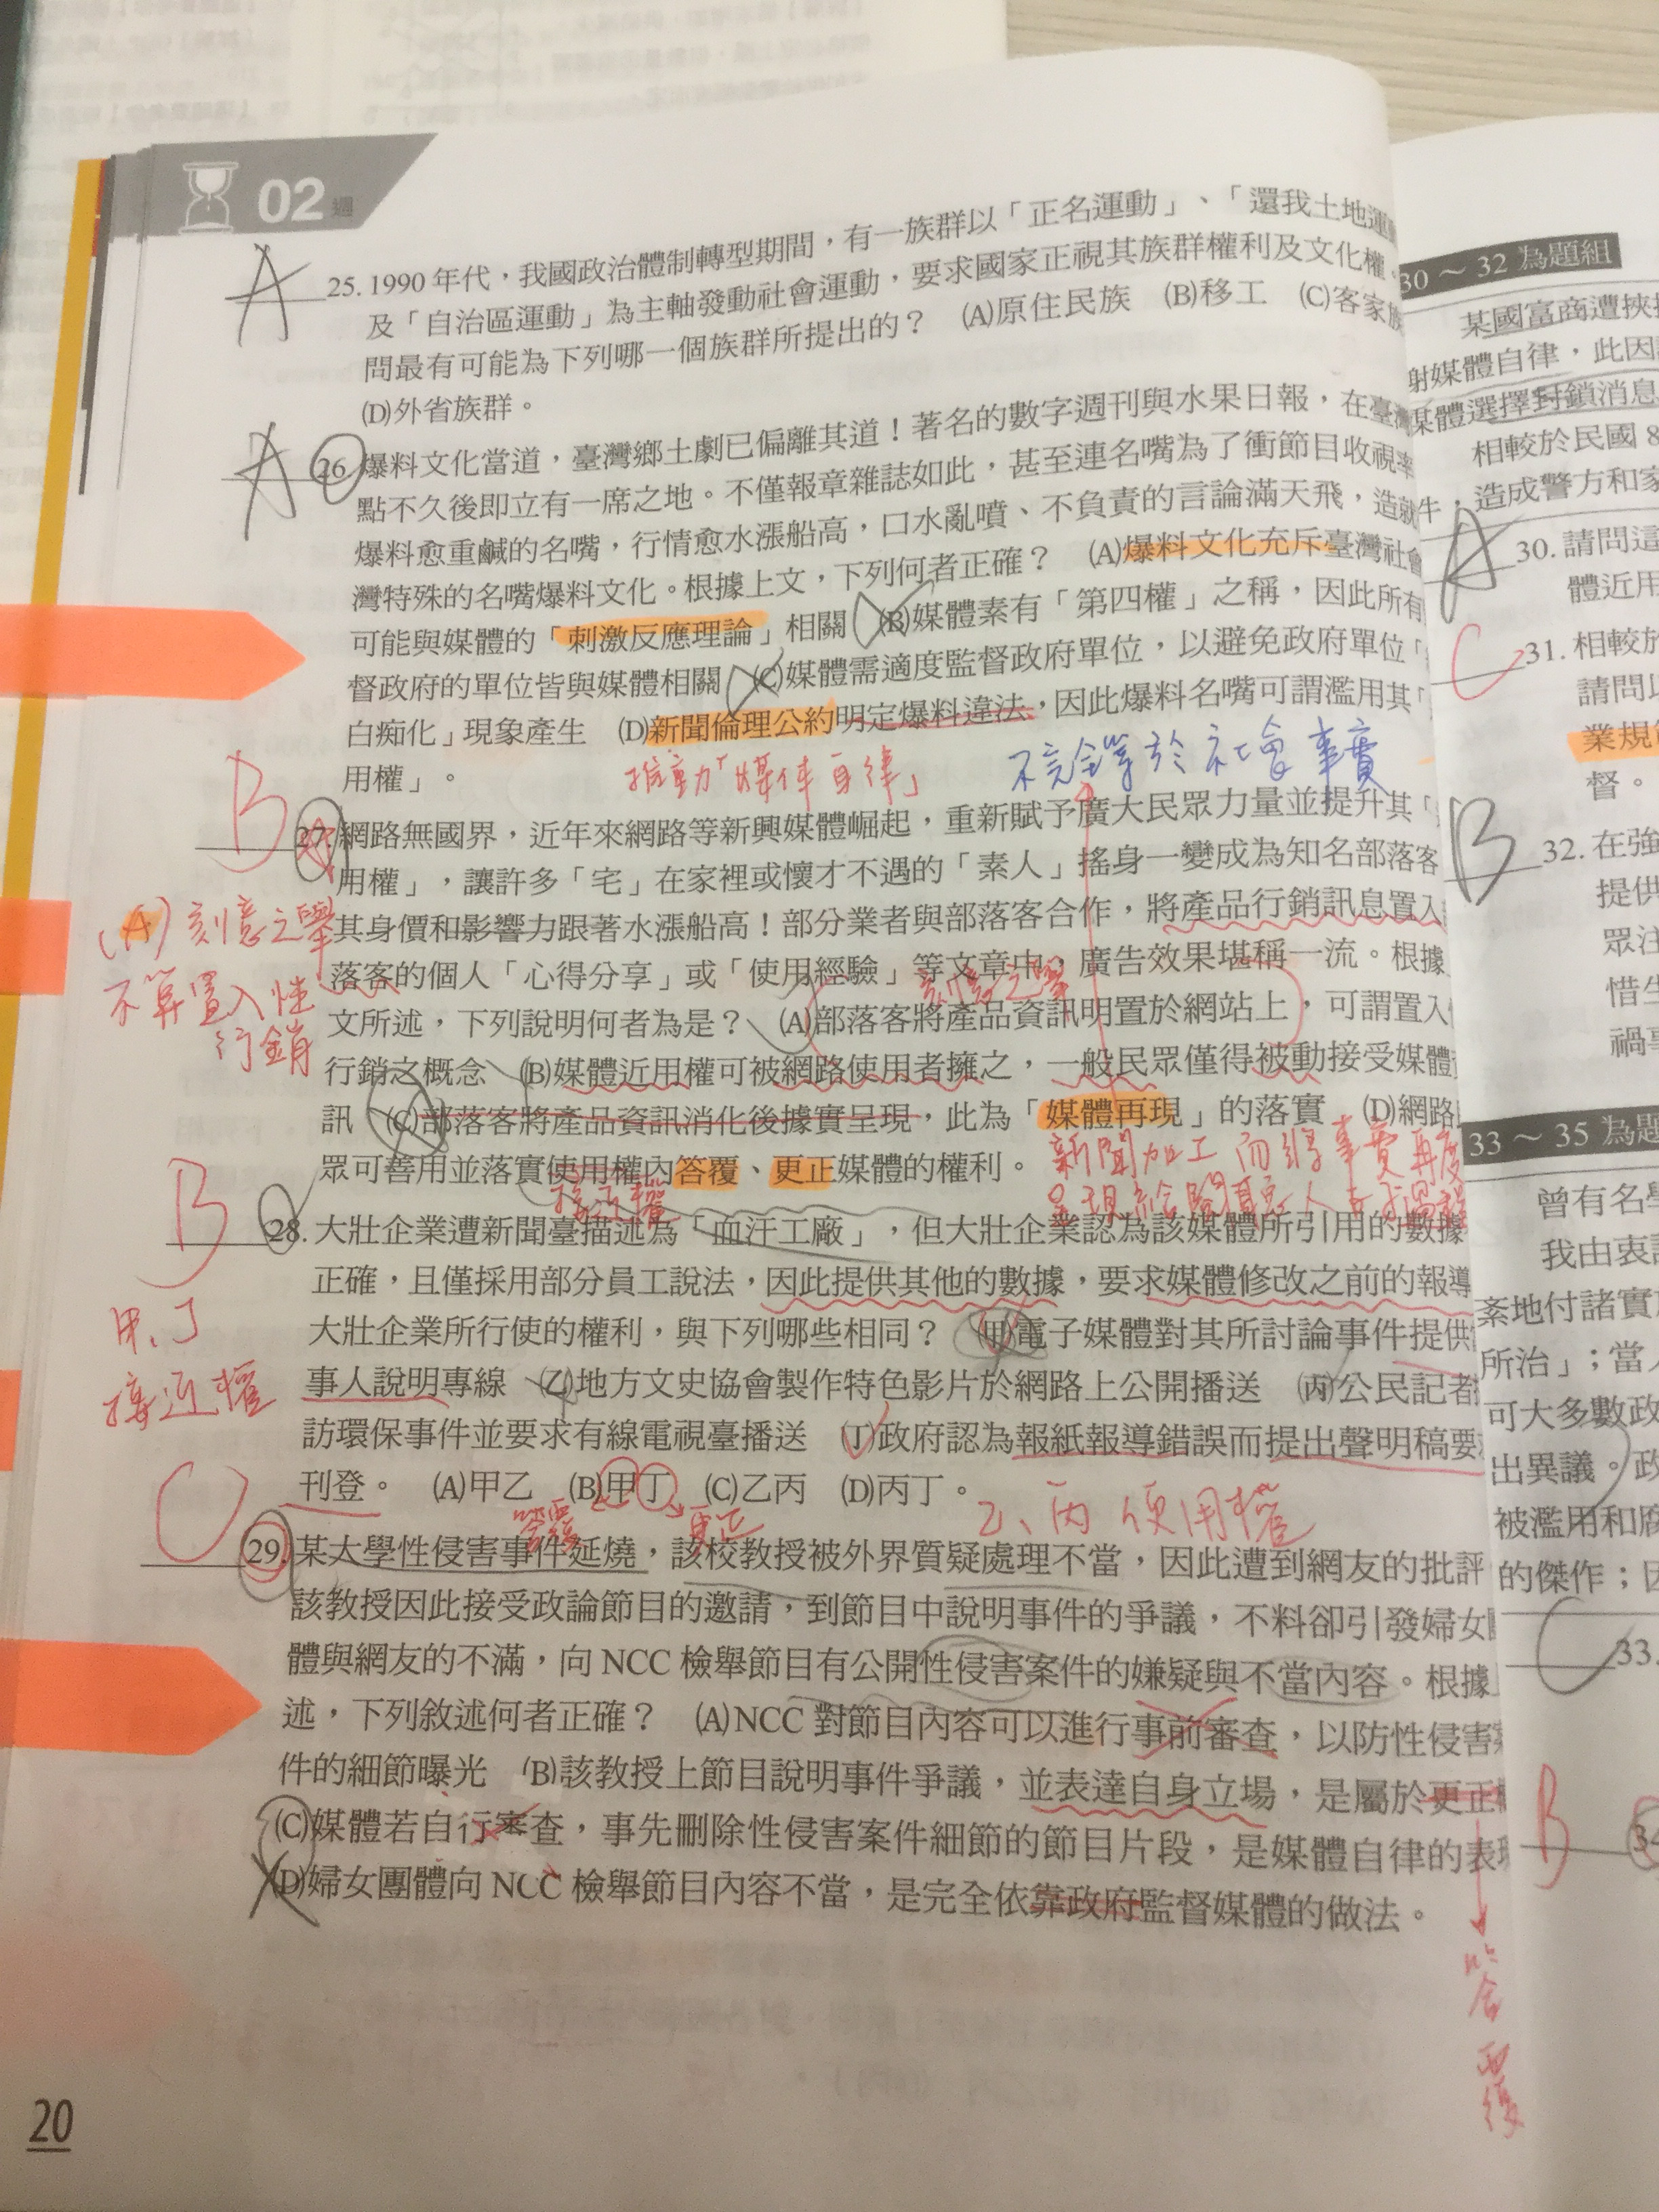 02 週
A
25. 1990 年代，我國政治體制轉型期間，有一族群以「正名運動」、「還我土地運
及「自治區運動」為主軸發動社會運動，要求國家正視其族群權利及文化權。
問最有可能為下列哪一個族群所提出的？ (A)原住民族 (B)移工 (C)客家族
(D)外省族群。
A
26. 爆料文化當道，臺灣鄉土劇已偏離其道！著名的數字週刊與水果日報，在臺灣
點不久後即立有一席之地。不僅報章雜誌如此，甚至連名嘴為了衝節目收視率
爆料愈重鹹的名嘴，行情愈水漲船高，口水亂噴、不負責的言論滿天飛，造就
灣特殊的名嘴爆料文化。根據上文，下列何者正確？ (A)爆料文化充斥臺灣社會
可能與媒體的「刺激反應理論」相關 (B)媒體素有「第四權」之稱，因此所有
督政府的單位皆與媒體相關 (C)媒體需適度監督政府單位，以避免政府單位「
白痴化」現象產生 (D)新聞倫理公約明定爆料違法，因此爆料名嘴可謂濫用其「
用權」。
推動「媒体自律」
不完全等於社會事實
B
27. 網路無國界，近年來網路等新興媒體崛起，重新賦予廣大民眾力量並提升其「
用權」，讓許多「宅」在家裡或懷才不遇的「素人」搖身一變成為知名部落客
其身價和影響力跟著水漲船高！部分業者與部落客合作，將產品行銷訊息置入
落客的個人「心得分享」或「使用經驗」等文章中，廣告效果堪稱一流。根據
刻意之舉
文所述，下列說明何者為是？ (A)部落客將產品資訊明置於網站上，可謂置入
行銷之概念 (B)媒體近用權可被網路使用者擁之，一般民眾僅得被動接受媒體
訊 (C)部落客將產品資訊消化後據實呈現，此為「媒體再現」的落實 (D)網路
眾可善用並落實使用權內答覆、更正媒體的權利。
(A)刻意之舉
不算置入性
行銷
接近權
新聞加工而將事實再度
B
28. 大壯企業遭新聞臺描述為「血汗工廠」，但大壯企業認為該媒體所引用的數據
正確，且僅採用部分員工說法，因此提供其他的數據，要求媒體修改之前的報導
大壯企業所行使的權利，與下列哪些相同？ (甲)電子媒體對其所討論事件提供
事人說明專線 (乙)地方文史協會製作特色影片於網路上公開播送 (丙)公民記者
訪環保事件並要求有線電視臺播送 (丁)政府認為報紙報導錯誤而提出聲明稿要
刊登。 (A)甲乙 (B)甲丁 (C)乙丙 (D)丙丁。
甲、丁
接近權
答覆
更正
乙、丙 使用權
C
29. 某大學性侵害事件延燒，該校教授被外界質疑處理不當，因此遭到網友的批評
該教授因此接受政論節目的邀請，到節目中說明事件的爭議，不料卻引發婦女
體與網友的不滿，向 NCC 檢舉節目有公開性侵害案件的嫌疑與不當內容。根據
述，下列敘述何者正確？ (A) NCC 對節目內容可以進行事前審查，以防性侵害
件的細節曝光 (B)該教授上節目說明事件爭議，並表達自身立場，是屬於更正
(C)媒體若自行審查，事先刪除性侵害案件細節的節目片段，是媒體自律的表
(D)婦女團體向 NCC 檢舉節目內容不當，是完全依靠政府監督媒體的做法。
答覆
20
30～32 為題組
某國富商遭挾
媒體自律，此因
媒體選擇封鎖消息
相較於民國 8
，造成警方和家
A
30. 請問這
體近用
C
31. 相較於
請問以
業規
督。
B
32. 在強
提供
眾
惜
禍
33～35 為題
曾有名
我由衷
紊地付諸實
所治」；當
可大多數政
出異議。政
被濫用和
的傑作；因
C
33.
B
34